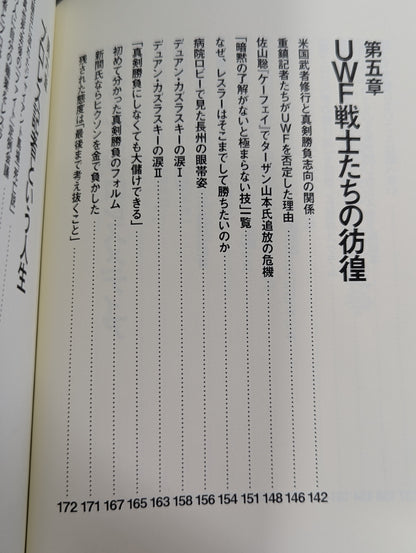 第五章
UWF戦士たちの彷徨
米国武者修行と真剣勝負志向の関係……142
重鎮記者たちがUWFを否定した理由……146
佐山聡『ケーフェイ』でターザン山本氏追放の危機……148
「暗黙の了解がないと極まらない技」一覧……151
なぜ、レスラーはそこまでして勝ちたいのか……154
病院ロビーで見た長州の眼帯姿……156
デュアン・カズラスキーの涙Ⅰ……158
デュアン・カズラスキーの涙Ⅱ……163
「真剣勝負にしなくても大儲けできる」……165
初めて分かった真剣勝負のフォルム……167
新間氏ならヒクソンを金で負かした……171
残された態度は「最後まで考え抜くこと」……172